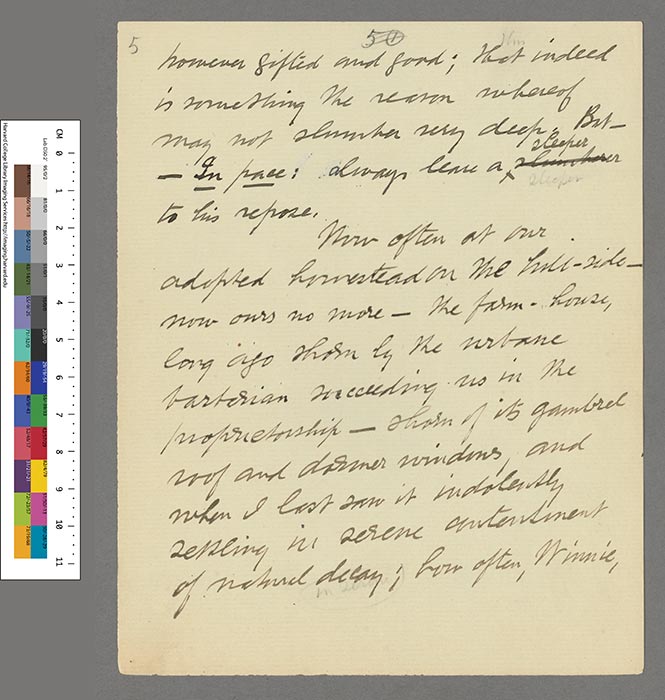 5
5 ①
however gifted and good; that indeed
is something the reason whereof
may not slumber very deep. But—
— In pace: always leave a slumberer
sleeper
sleeper
to his repose.
How often at our
adopted homestead on the hill-side—
now ours no more — the farm-house,
long ago shorn by the urbane
barbarian succeeding us in the
proprietorship — shorn of its gambrel
roof and dormer windows, and
when I last saw it indolently
settling in serene contentment
of natural decay; how often, Winnie,
CM 0 1 2 3 4 5 6 7 8 9 10 11
Harvard College Library Imaging Services http://imaging.harvard.edu